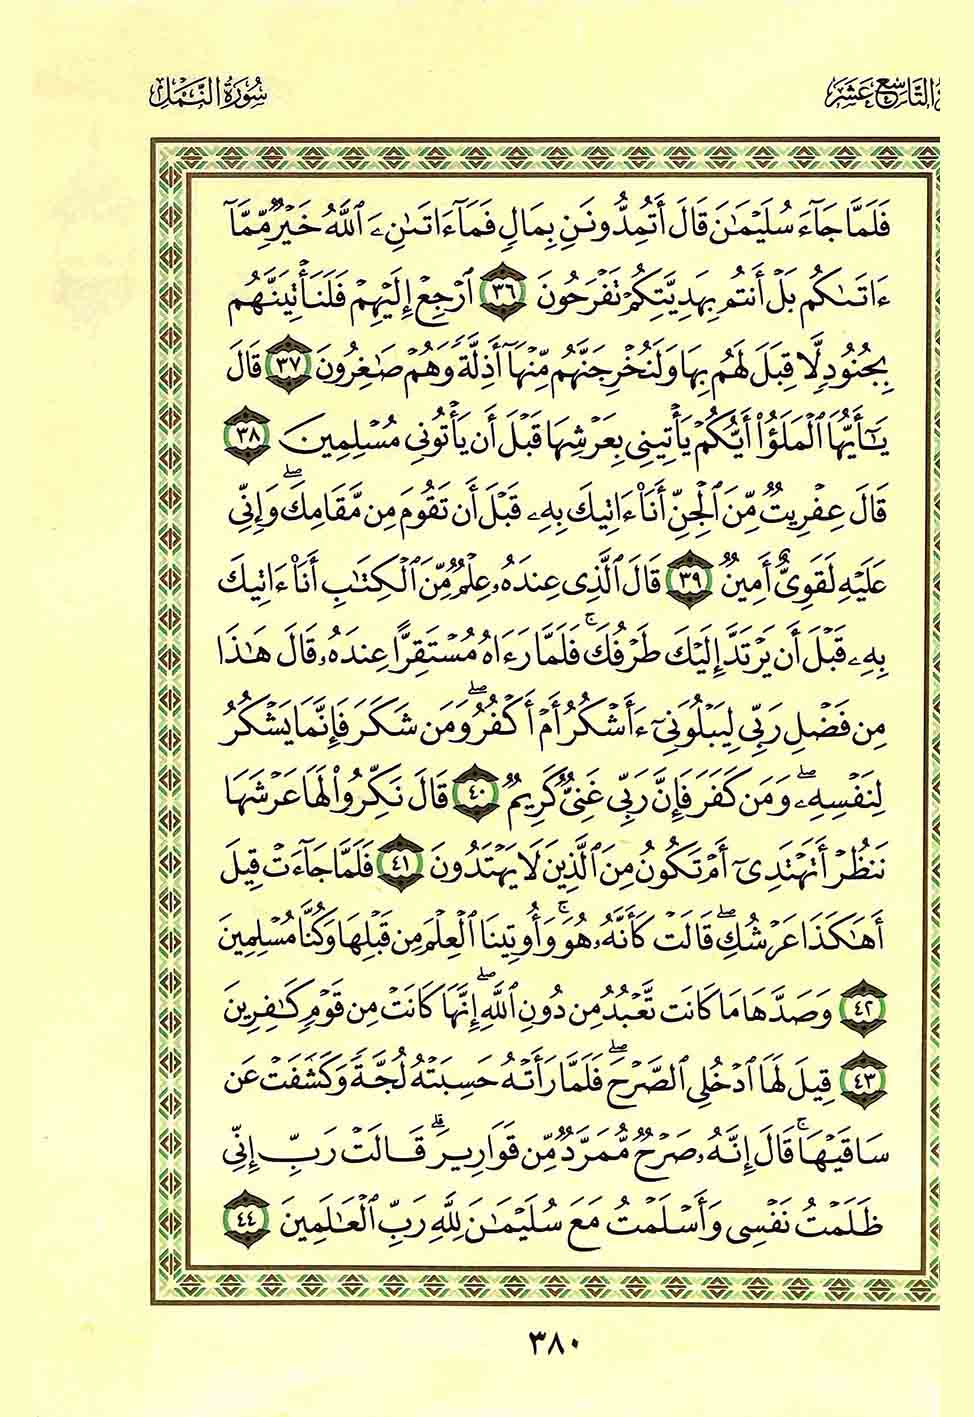 التَّاسِعَ عَشَرَ
سُورَةُ النَّمْلِ
فَلَمَّا جَآءَ سُلَيْمَٰنَ قَالَ أَتُمِدُّونَنِ بِمَالٍ فَمَآ ءَاتَىٰنِۦَ ٱللَّهُ خَيْرٌ مِّمَّآ
ءَاتَىٰكُم بَلْ أَنتُم بِهَدِيَّتِكُمْ تَفْرَحُونَ ٣٦ ٱرْجِعْ إِلَيْهِمْ فَلَنَأْتِيَنَّهُم
بِجُنُودٍ لَّا قِبَلَ لَهُم بِهَا وَلَنُخْرِجَنَّهُم مِّنْهَآ أَذِلَّةً وَهُمْ صَٰغِرُونَ ٣٧ قَالَ
يَٰٓأَيُّهَا ٱلْمَلَؤُا۟ أَيُّكُمْ يَأْتِينِى بِعَرْشِهَا قَبْلَ أَن يَأْتُونِى مُسْلِمِينَ ٣٨
قَالَ عِفْرِيتٌ مِّنَ ٱلْجِنِّ أَنَا۠ ءَاتِيكَ بِهِۦ قَبْلَ أَن تَقُومَ مِن مَّقَامِكَ ۖ وَإِنِّى
عَلَيْهِ لَقَوِىٌّ أَمِينٌ ٣٩ قَالَ ٱلَّذِى عِندَهُۥ عِلْمٌ مِّنَ ٱلْكِتَٰبِ أَنَا۠ ءَاتِيكَ
بِهِۦ قَبْلَ أَن يَرْتَدَّ إِلَيْكَ طَرْفُكَ ۚ فَلَمَّا رَءَاهُ مُسْتَقِرًّا عِندَهُۥ قَالَ هَٰذَا
مِن فَضْلِ رَبِّى لِيَبْلُوَنِىٓ ءَأَشْكُرُ أَمْ أَكْفُرُ ۖ وَمَن شَكَرَ فَإِنَّمَا يَشْكُرُ
لِنَفْسِهِۦ ۖ وَمَن كَفَرَ فَإِنَّ رَبِّى غَنِىٌّ كَرِيمٌ ٤٠ قَالَ نَكِّرُوا۟ لَهَا عَرْشَهَا
نَنظُرْ أَتَهْتَدِىٓ أَمْ تَكُونُ مِنَ ٱلَّذِينَ لَا يَهْتَدُونَ ٤١ فَلَمَّا جَآءَتْ قِيلَ
أَهَٰكَذَا عَرْشُكِ ۖ قَالَتْ كَأَنَّهُۥ هُوَ ۚ وَأُوتِينَا ٱلْعِلْمَ مِن قَبْلِهَا وَكُنَّا مُسْلِمِينَ
٤٢ وَصَدَّهَا مَا كَانَت تَّعْبُدُ مِن دُونِ ٱللَّهِ ۖ إِنَّهَا كَانَتْ مِن قَوْمٍ كَٰفِرِينَ
٤٣ قِيلَ لَهَا ٱدْخُلِى ٱلصَّرْحَ ۖ فَلَمَّا رَأَتْهُ حَسِبَتْهُ لُجَّةً وَكَشَفَتْ عَن
سَاقَيْهَا ۚ قَالَ إِنَّهُۥ صَرْحٌ مُّمَرَّدٌ مِّن قَوَارِيرَ ۗ قَالَتْ رَبِّ إِنِّى
ظَلَمْتُ نَفْسِى وَأَسْلَمْتُ مَعَ سُلَيْمَٰنَ لِلَّهِ رَبِّ ٱلْعَٰلَمِينَ ٤٤
٣٨٠